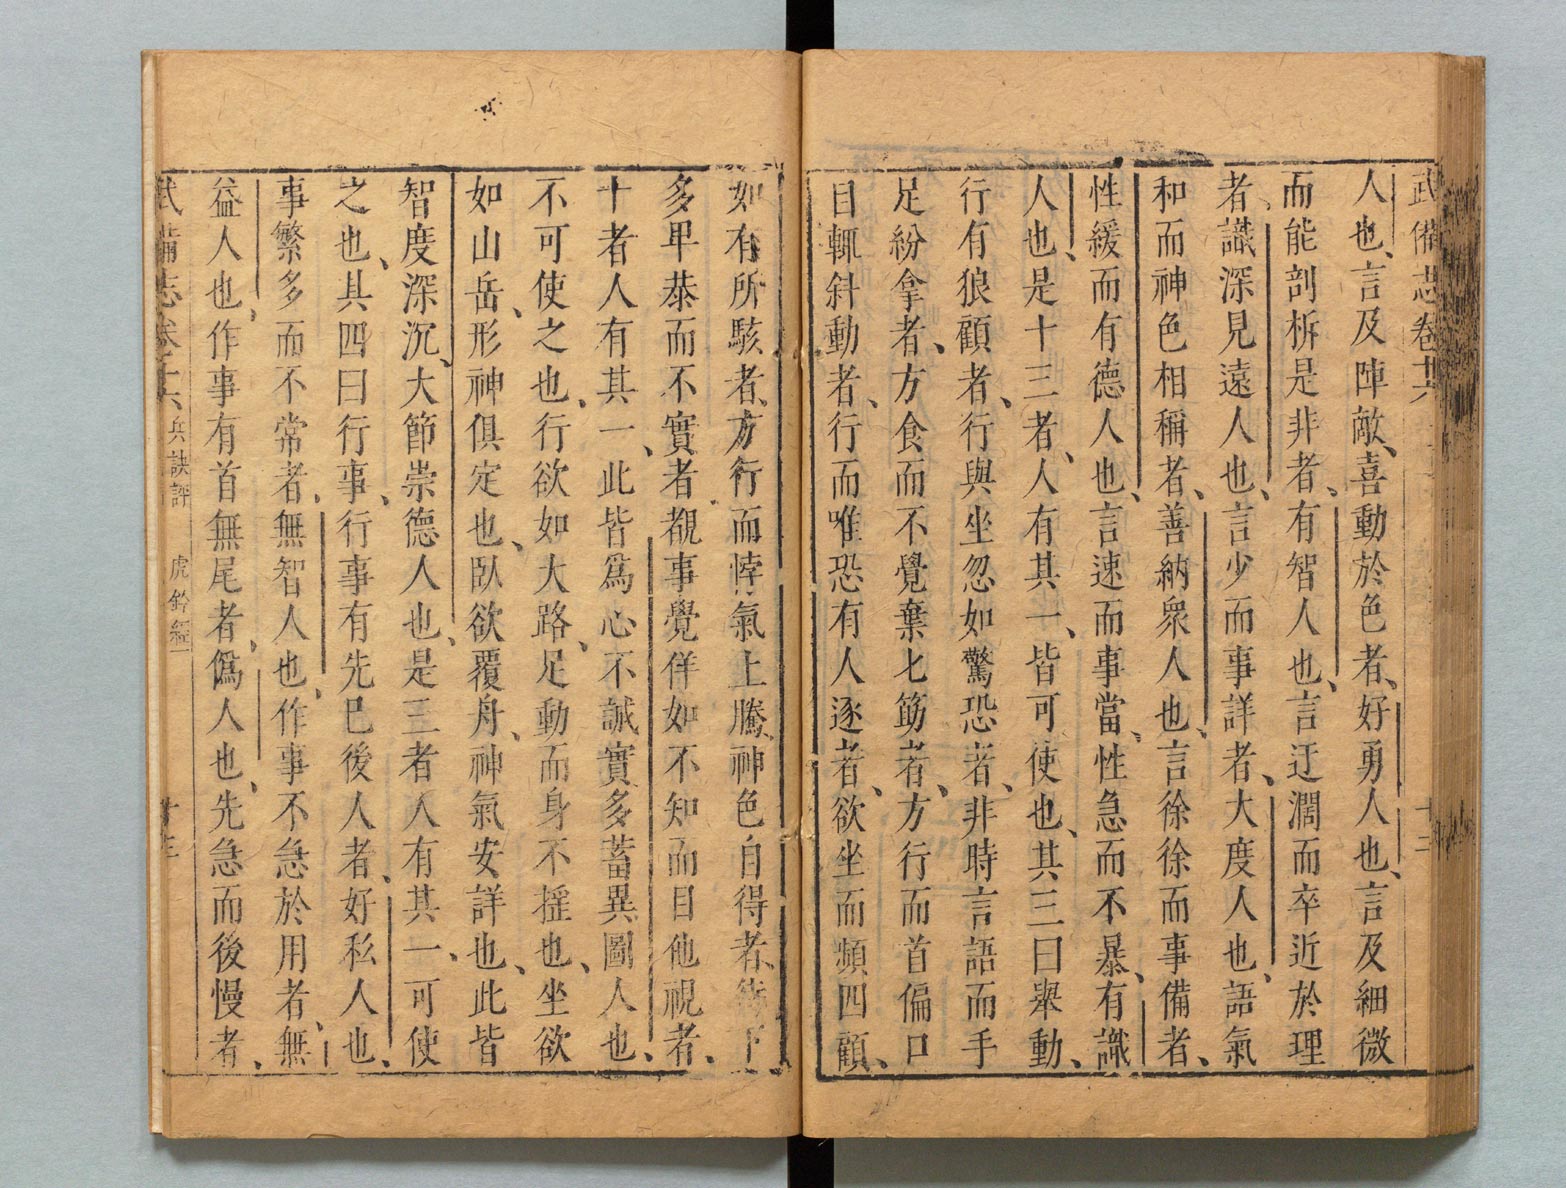 武備志卷廿六
十二
人也言及陣敵喜動於色者好勇人也言及細微
而能剖柝是非者有智人也言迂濶而卒近於理
者識深見遠人也言少而事詳者大度人也語氣
和而神色相稱者善納衆人也言徐徐而事備者
性緩而有德人也言速而事當性急而不暴有識
人也是十三者人有其一皆可使也其三曰舉動
行有狼顧者行與坐忽如驚恐者非時言語而手
足紛拿者方食而不覺棄匕筯者方行而首偏口
目輒斜動者行而唯恐有人逐者欲坐而頻四顧
如有所駭者方行而悖氣上騰神色自得者待下
多卑恭而不實者覩事覺佯如不知而目他視者
十者人有其一此皆爲心不誠實多蓄異圖人也
不可使之也行欲如大路足動而身不摇也坐欲
如山岳形神俱定也臥欲覆舟神氣安詳也此皆
智度深沉大節崇德人也是三者人有其一可使
之也其四曰行事行事有先巳後人者好私人也
事繁多而不常者無智人也作事不急於用者無
益人也作事有首無尾者僞人也先急而後慢者
武備志卷二十六 兵訣評 虎鈐經
十三